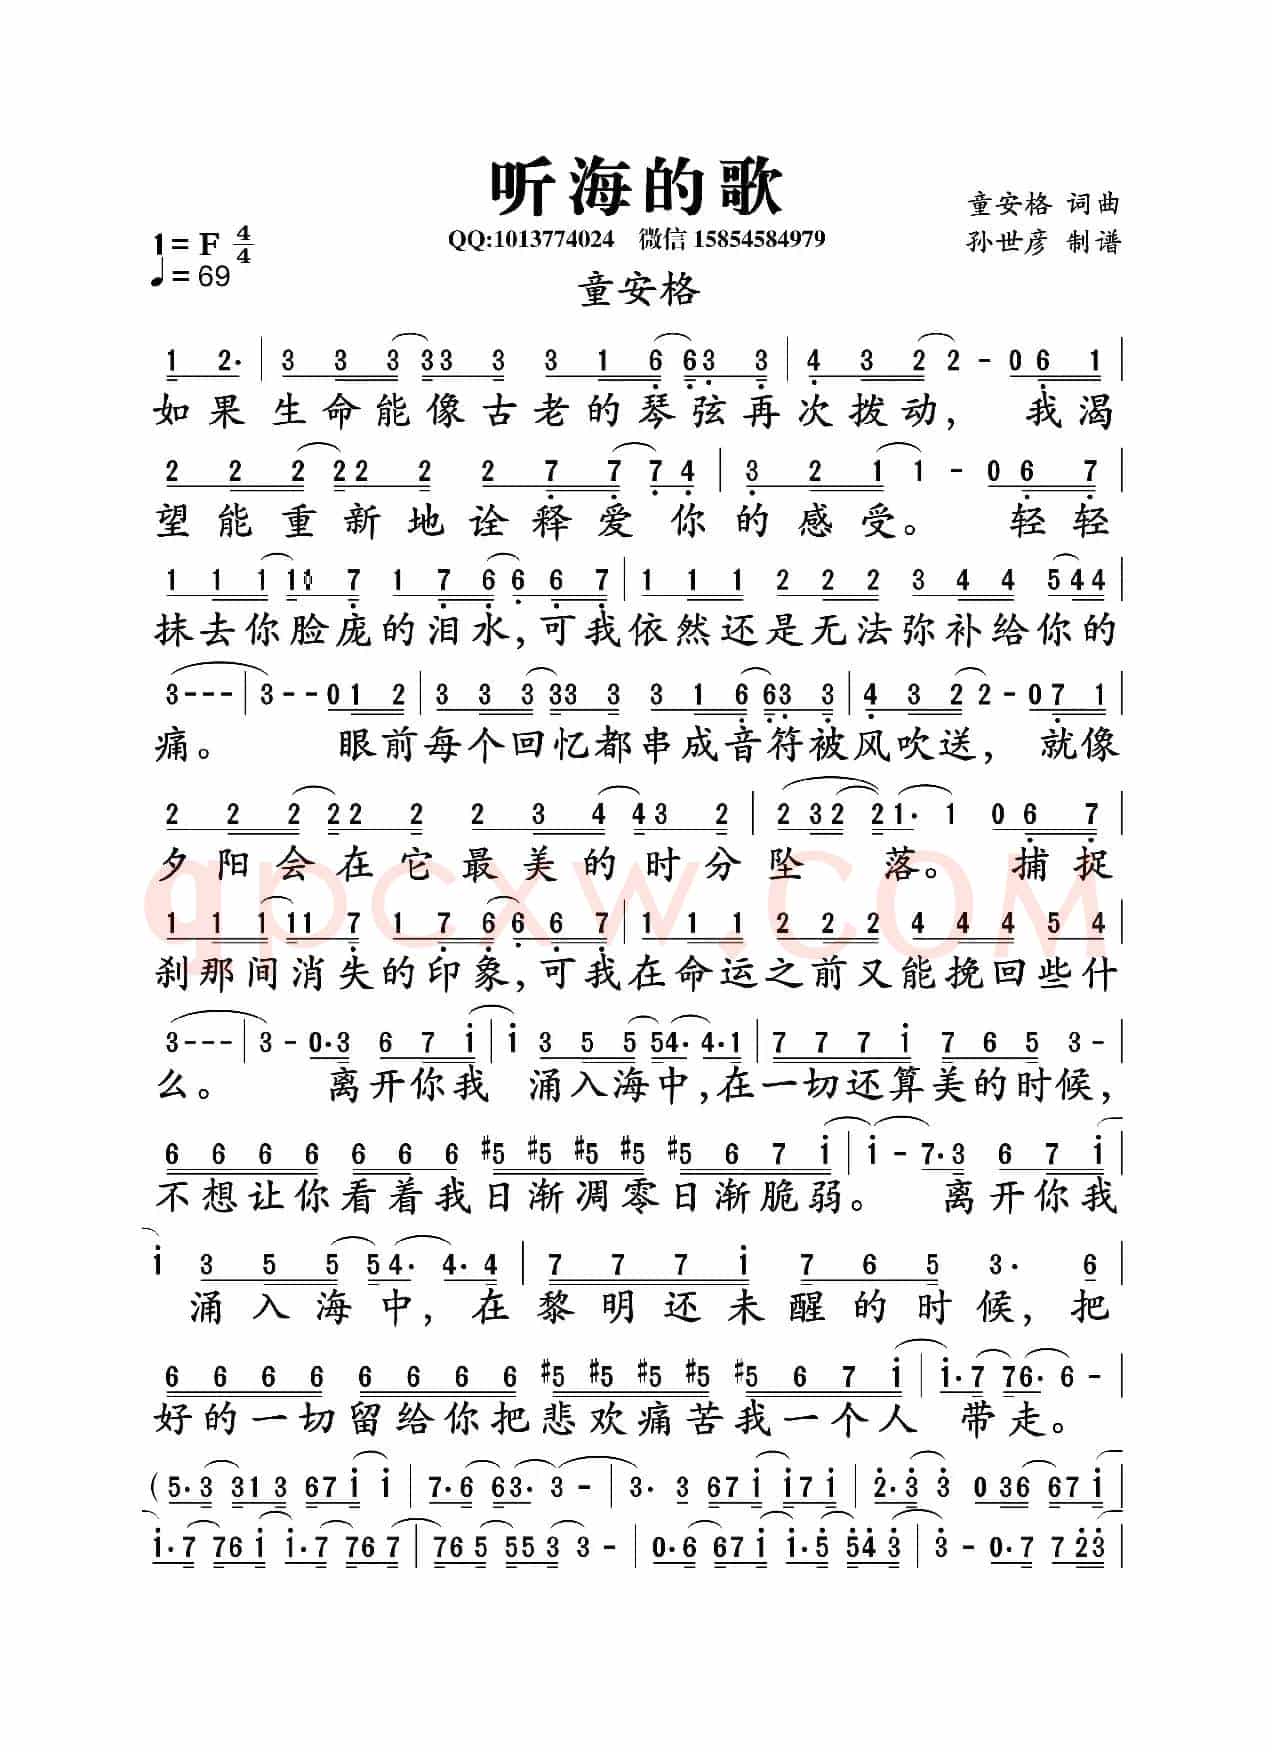 听海的歌
童安格 词曲
1=F 4/4
QQ:1013774024 微信 15854584979
孙世彦 制谱
♩=69
童安格
1 2· | 3 3 3 33 3 3 1 6 63 3 | 4 3 2 2 - 0 6 1 |
如果生命能像古老的琴弦再次拨动, 我渴
2 2 2 22 2 2 7 7 7 4 | 3 2 1 1 - 0 6 7 |
望能重新地诠释爱你的感受。 轻轻
1 1 1 11 7 1 7 6 6 6 7 | 1 1 1 2 2 2 3 4 4 544 |
抹去你脸庞的泪水,可我依然还是无法弥补给你的
3--- | 3--01 2 | 3 3 3 33 3 3 1 6 63 3 | 4 3 2 2 - 0 7 1 |
痛。 眼前每个回忆都串成音符被风吹送, 就像
2 2 2 22 2 2 3 4 43 2 | 2 32 21· 1 0 6 7 |
夕阳会在它最美的时分坠 落。 捕捉
1 1 1 11 7 1 7 6 6 6 7 | 1 1 1 2 2 2 4 4 4 5 4 |
刹那间消失的印象,可我在命运之前又能挽回些什
3--- | 3 - 0·3 6 7 i | i 3 5 5 54· 4·1 | 7 7 7 i 7 6 5 3 - |
么。 离开你我 涌入海中,在一切还算美的时候,
6 6 6 6 6 6 6 #5 #5 #5 #5 #5 6 7 i | i - 7·3 6 7 i |
不想让你看着我日渐凋零日渐脆弱。 离开你我
i 3 5 5 54· 4· 4 | 7 7 7 i 7 6 5 3· 6 |
涌入海中, 在黎明还未醒的时候, 把
6 6 6 6 6 6 6 6 #5 #5 #5 #5 #5 6 7 i | i·7 76· 6 - |
好的一切留给你把悲欢痛苦我一个人 带走。
(5·3 31 3 67 i i | 7·6 63· 3 - | 3· 3 67 i i7 i | 2·3 3 0 36 67 i |
i·7 76 i i·7 76 7 | 76 5 55 3 3 - | 0·6 67 i i·5 54 3 | 3 - 0·7 7 23 |
gpcxw.COM